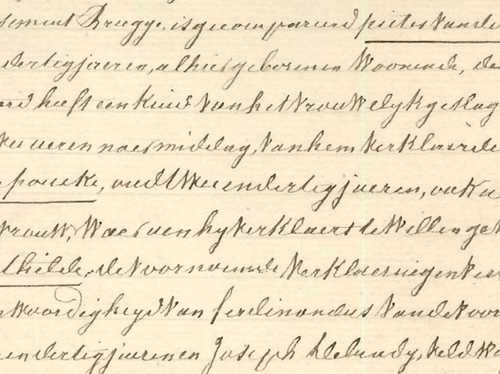 sement Brugge, is gecompareerd pieter Vande
dertig jaeren, alhier geboren en Woonende, de
heeft een Kind Van het Vrouwelyk geslag
Twee ueren naer middag, Van hem Verklaerde
poucke, oudt twee en dertig jaeren, ook
Vrouw, Waer aen hy Verklaert te Willen geV
thilde, de Voornoemde Verklaeringen
Woordigheyd Van ferdinandus Vande Voor
en dertig jaeren en Joseph Veld